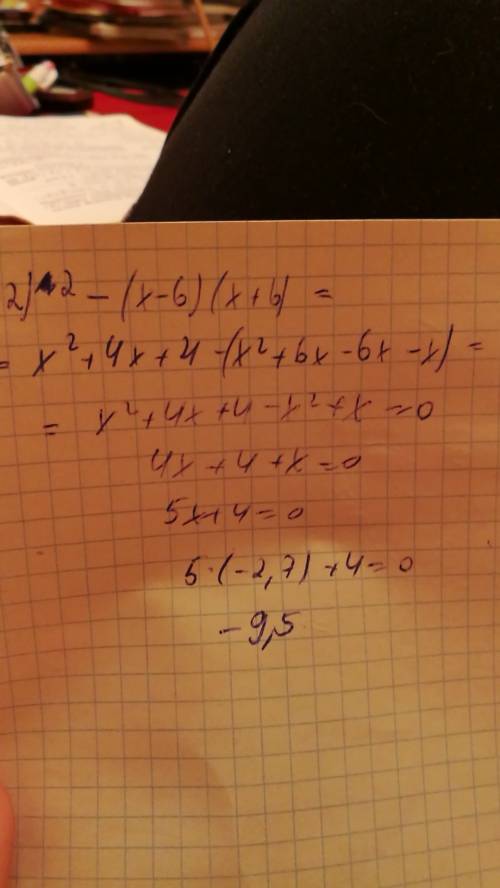 2) 2 - (x-6) (x+6) =
= x²+4x+4-(x²+6x-6x-x) =
= x²+4x+4-x²+x=0
4x+4+x=0
5x+4=0
5·(-2,7)+4=0
-9,5